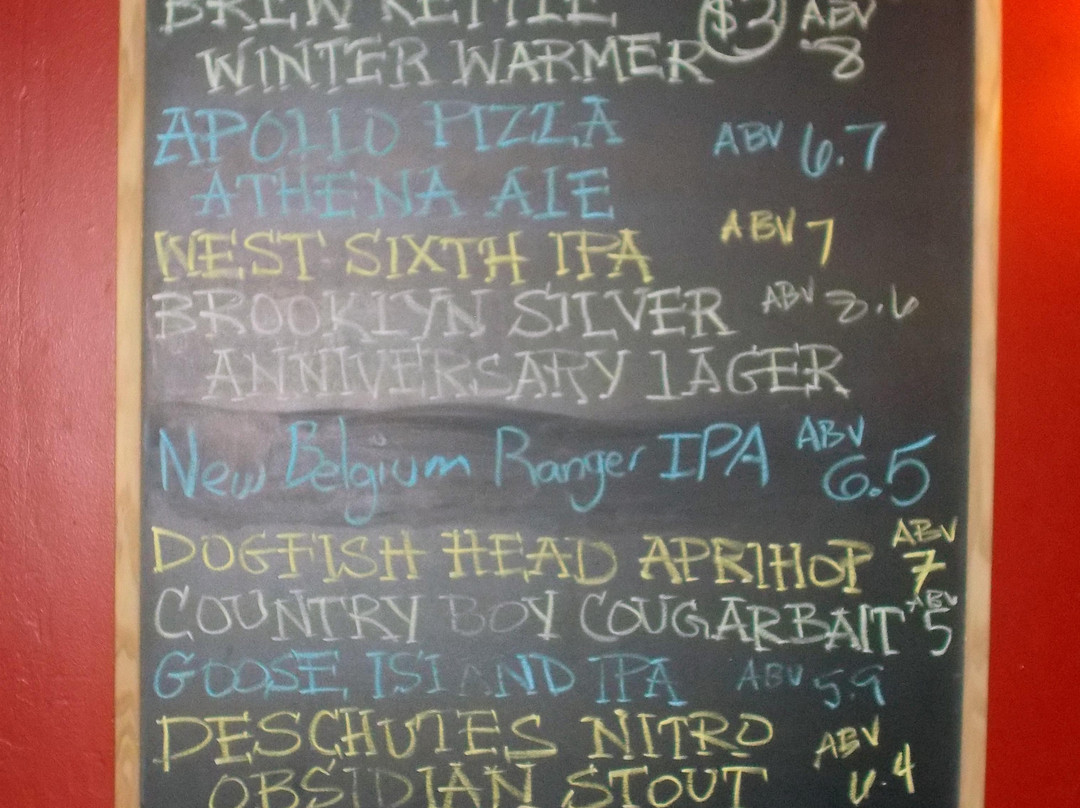 BREW KETTLE $3 ABV
WINTER WARMER 8
APOLLO PIZZA ABV 6.7
ATHENA ALE
WEST SIXTH IPA ABV 7
BROOKLYN SILVER ABV 8.6
ANNIVERSARY LAGER
New Belgium Ranger IPA ABV 6.5
DOGFISH HEAD APRIHOP ABV 7
COUNTRY BOY COUGARBAIT ABV 5
GOOSE ISLAND IPA ABV 5.9
DESCHUTES NITRO ABV
OBSIDIAN STOUT 6.4